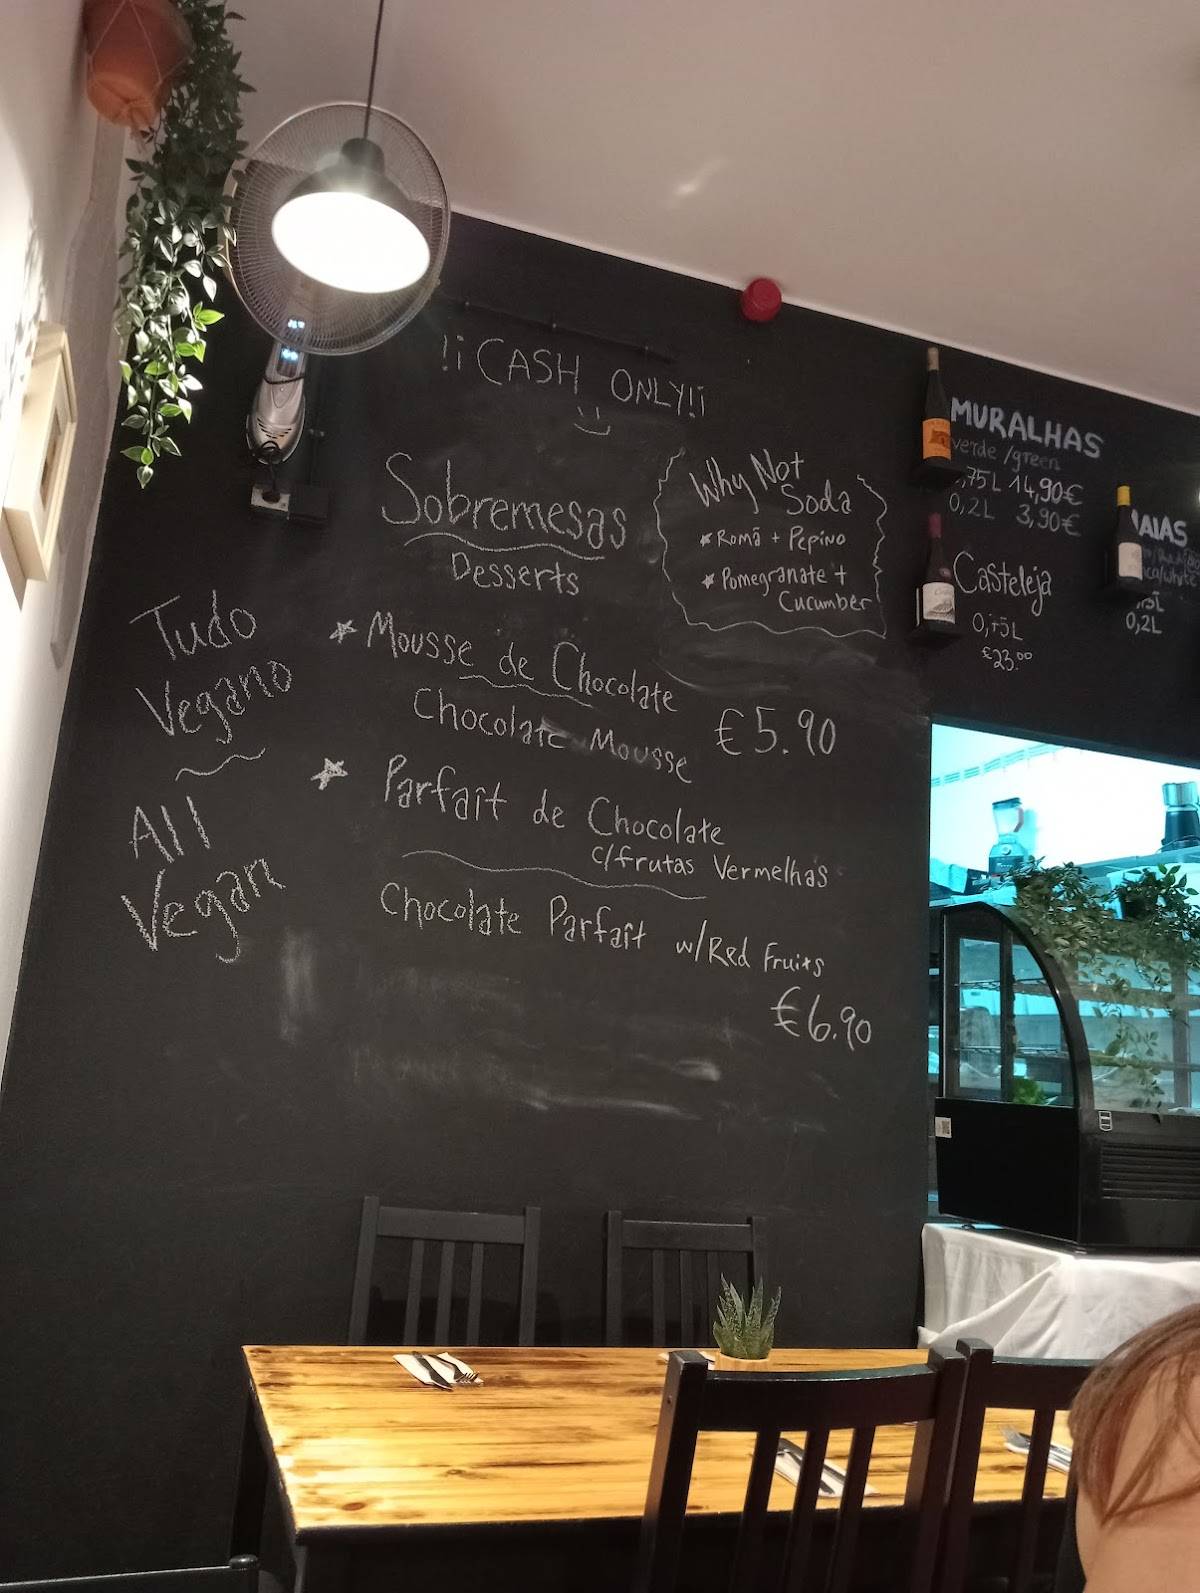 !¡CASH ONLY!¡
Sobremesas
Desserts
Why Not
Soda
Romã + Pepino
Pomegranate +
Cucumber
Tudo
Vegano
All
Vegan
Mousse de Chocolate
Chocolate Mousse
€5.90
Parfait de Chocolate
c/frutas Vermelhas
Chocolate Parfait w/Red Fruits
€6.90
MURALHAS
verde/green
,75L 14,90€
0,2L 3,90€
Casteleja
0,75L
€23.00
AIAS
0,2L